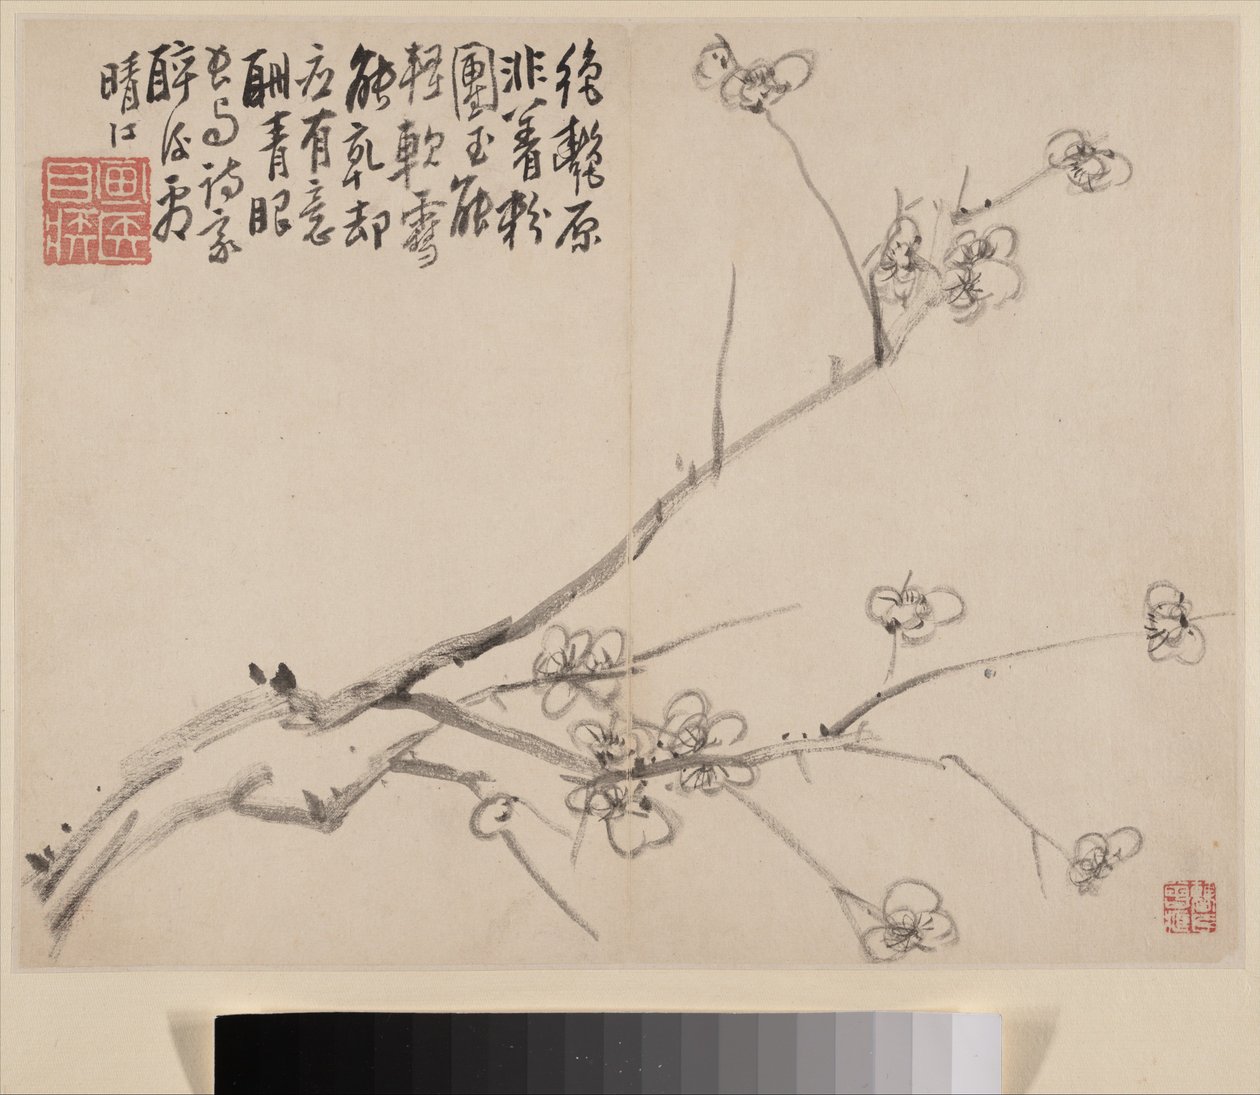 絶艷原
非着粉
團玉能
輕軟雪
能乾却
应有意
酬青眼
長与詩家
醉後看
晴江